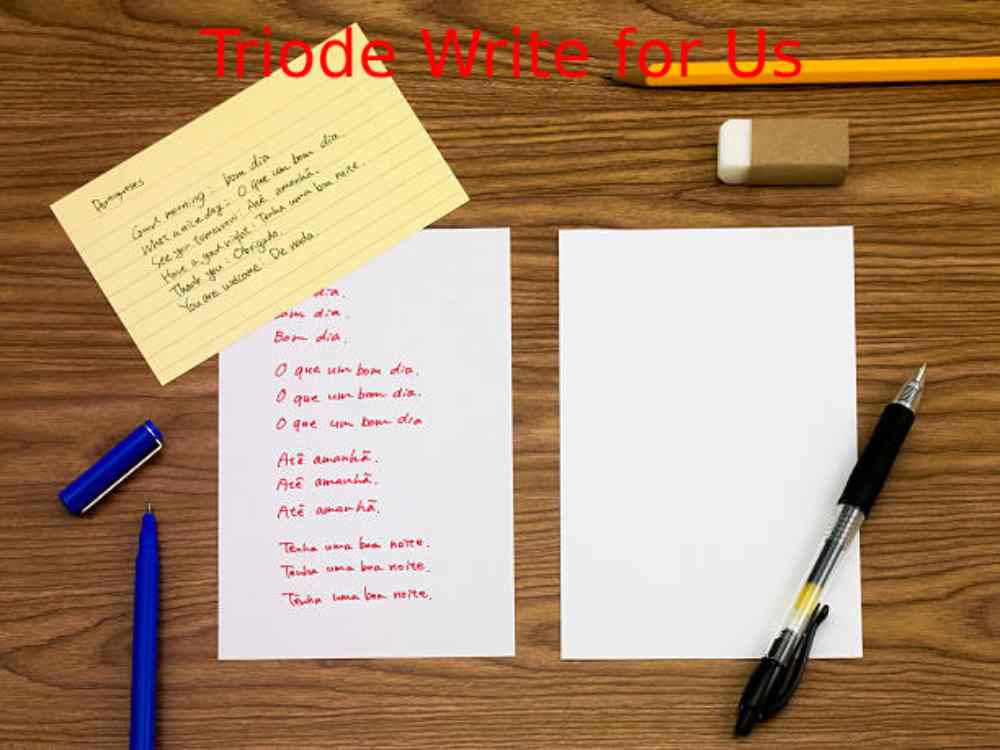 Triode Write for Us
Portugueses
Good morning : bom dia
What a nice day : O que um bom dia.
See you tomorrow : Até amanhã.
Have a good night : Tenha uma boa noite.
Thank you : Obrigado.
You are welcome : De nada.
dia.
Bom dia.
Bom dia.
O que um bom dia.
O que um bom dia.
O que um bom dia
Atē amanhã.
Atē amanhã.
Atē amanhã.
Tenha uma boa noite.
Tenha uma boa noite.
Tenha uma boa noite.